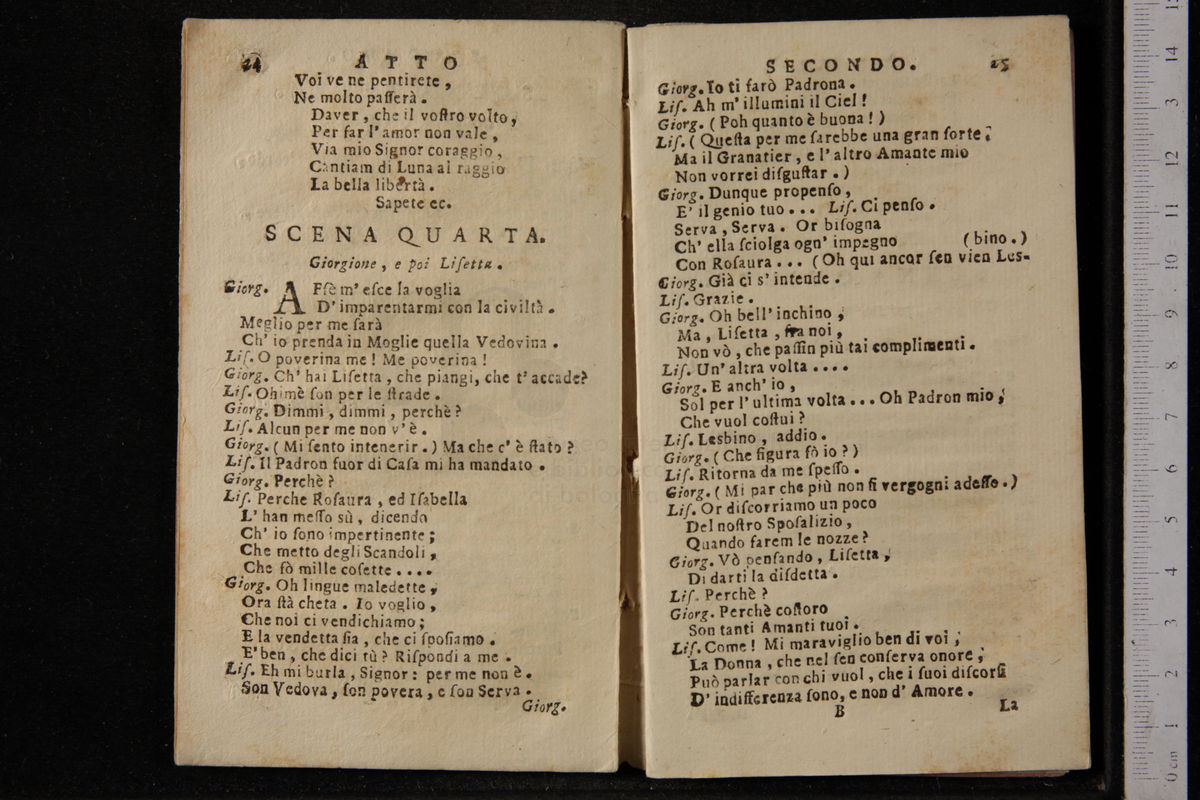 24 ATTO
Voi ve ne pentirete,
Ne molto paſſerà.
Daver, che il voſtro volto,
Per far l'amor non vale,
Via mio Signor coraggio,
Cantiam di Luna al raggio
La bella libertà.
Sapete ec.
SCENA QUARTA.
Giorgione, e poi Liſetta.
Giorg. AFſè m' eſce la voglia
D' imparentarmi con la civiltà.
Meglio per me ſarà
Ch' io prenda in Moglie quella Vedovina.
Liſ. O poverina me! Me poverina!
Giorg. Ch' hai Liſetta, che piangi, che t' accade?
Liſ. Ohimè ſon per le ſtrade.
Giorg. Dimmi, dimmi, perchè?
Liſ. Alcun per me non v'è.
Giorg. (Mi ſento intenerir.) Ma che c' è ſtato?
Liſ. Il Padron fuor di Caſa mi ha mandato.
Giorg. Perchè?
Liſ. Perche Roſaura, ed Iſabella
L' han meſſo sù, dicendo
Ch' io ſono impertinente;
Che metto degli Scandoli,
Che fò mille coſette....
Giorg. Oh lingue maledette,
Ora ſtà cheta. Io voglio,
Che noi ci vendichiamo;
E la vendetta ſia, che ci ſpoſiamo.
E'ben, che dici tù? Riſpondi a me.
Liſ. Eh mi burla, Signor: per me non è.
Son Vedova, ſon povera, e ſon Serva.
Giorg.
SECONDO. 25
Giorg. Io ti farò Padrona.
Liſ. Ah m' illumini il Ciel!
Giorg. (Poh quanto è buona!)
Liſ. (Queſta per me ſarebbe una gran ſorte;
Ma il Granatier, e l' altro Amante mio
Non vorrei diſguſtar.)
Giorg. Dunque propenſo,
E' il genio tuo... Liſ. Ci penſo.
Serva, Serva. Or biſogna
Ch' ella ſciolga ogn' impegno (bino.)
Con Roſaura... (Oh qui ancor ſen vien Les-
Giorg. Già ci s' intende.
Liſ. Grazie.
Giorg. Oh bell' inchino;
Ma, Liſetta, fra noi,
Non vò, che paſſin più tai complimenti.
Liſ. Un' altra volta....
Giorg. E anch' io,
Sol per l' ultima volta... Oh Padron mio;
Che vuol coſtui?
Liſ. Lesbino, addio.
Giorg. (Che figura fò io?)
Liſ. Ritorna da me ſpeſſo.
Giorg. (Mi par che più non ſi vergogni adeſſo.)
Liſ. Or diſcorriamo un poco
Del noſtro Spoſalizio,
Quando farem le nozze?
Giorg. Vò penſando, Liſetta,
Di darti la diſdetta.
Liſ. Perchè?
Giorg. Perchè coſtoro
Son tanti Amanti tuoi.
Liſ. Come! Mi maraviglio ben di voi;
La Donna, che nel ſen conſerva onore,
Può parlar con chi vuol, che i ſuoi diſcorſi
D' indifferenza ſono, e non d' Amore.
B La